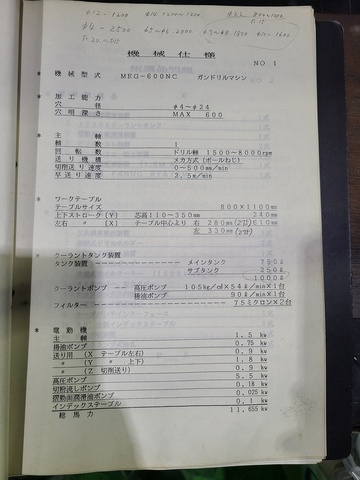 φ12-1200 φ16 1200~1300
φ4 - 2500
機械仕様
NO 1
* 機械型式 MEG-600NC ガンドリルマシン
* 加工能力
穴径 φ4~φ24
穴明深さ MAX 600
* 主軸
軸数 1
回転数 ドリル軸 1500~8000rpm
送り機構 メカ方式 (ボールねじ)
切削送り速度 0~500mm/min
早送り速度 2.5m/min
* ワークテーブル
テーブルサイズ 800×1100mm
上下ストローク (Y) 芯高110~350mm 240mm
左右 (X) テーブル中心より 右 280mm 610mm
左 330mm
* クーラントタンク装置
タンク装置 メインタンク 750ℓ
サブタンク 250ℓ
1000ℓ
クーラントポンプ 高圧ポンプ 105kg/c㎡×54ℓ/min×1台
排油ポンプ 90ℓ/min×1台
フィルター 75ミクロン×2台
* 電動機
主軸 1.5 kw
排油ポンプ 0.75 kw
送り用 (X テーブル左右) 0.9 kw
〃 (Y 〃 上下) 1.8 kw
〃 (Z 切削送り) 0.9 kw
高圧ポンプ 5.5 kw
切粉流しポンプ 0.18 kw
摺動面潤滑油ポンプ 0.025 kw
インデックステーブル 0.1 kw
総馬力 11.655 kw